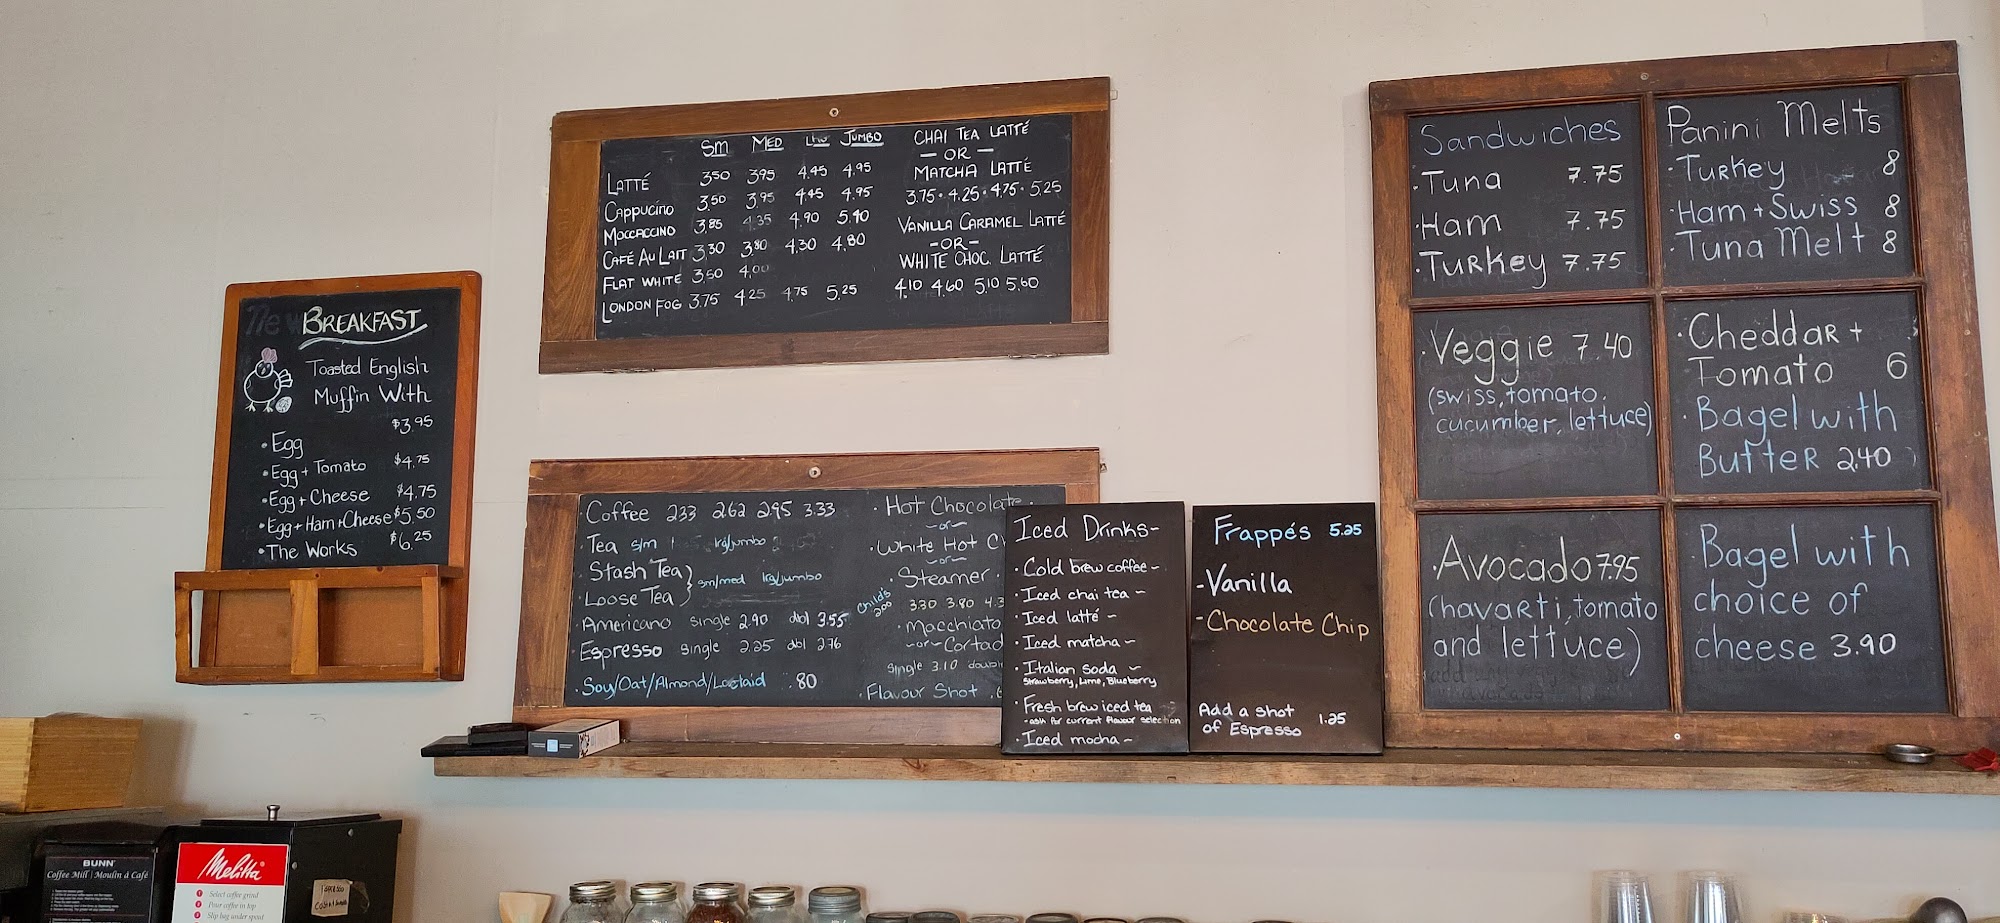 BREAKFAST
Toasted English
Muffin With
• Egg $3.95
• Egg + Tomato $4.75
• Egg + Cheese $4.75
• Egg + Ham + Cheese $5.50
• The Works $6.25
SM MED LRG JUMBO
LATTÉ 3.50 3.95 4.45 4.95
CAPPUCINO 3.50 3.95 4.45 4.95
MOCCACCINO 3.85 4.35 4.90 5.40
CAFÉ AU LAIT 3.30 3.80 4.30 4.80
FLAT WHITE 3.50 4.00
LONDON FOG 3.75 4.25 4.75 5.25
CHAI TEA LATTÉ
— OR —
MATCHA LATTÉ
3.75 • 4.25 • 4.75 • 5.25
VANILLA CARAMEL LATTÉ
— OR —
WHITE CHOC. LATTÉ
4.10 4.60 5.10 5.60
• Coffee 2.33 2.62 2.95 3.33
• Tea s/m lrg/jumbo
• Stash Tea
• Loose Tea } sm/med lrg/jumbo
• Americano single 2.90 dbl 3.55
• Espresso single 2.25 dbl 2.76
• Soy/Oat/Almond/Lactaid .80
• Hot Chocolate •
~or~
• White Hot
~or~
• Steamer •
Child's 2.00
3.30 3.80
• Macchiato
~or~ Cortad
single 3.10
• Flavour Shot
Iced Drinks ~
• Cold brew coffee ~
• Iced chai tea ~
• Iced latté ~
• Iced matcha ~
• Italian Soda ~
Strawberry, Lime, Blueberry
• Fresh brew iced tea
- ask for current flavour selection
• Iced mocha ~
Frappés 5.25
- Vanilla
- Chocolate Chip
Add a shot
of Espresso 1.25
Sandwiches
• Tuna 7.75
• Ham 7.75
• Turkey 7.75
• Veggie 7.40
(swiss, tomato,
cucumber, lettuce)
• Avocado 7.95
(havarti, tomato
and lettuce)
Panini Melts
• Turkey 8
• Ham + Swiss 8
• Tuna Melt 8
• Cheddar +
Tomato 6
• Bagel with
Butter 2.40
• Bagel with
choice of
cheese 3.90
BUNN
Coffee Mill | Moulin à Café
Melitta
1 Select coffee grind
2 Pour coffee in top
3 Slip bag under spout